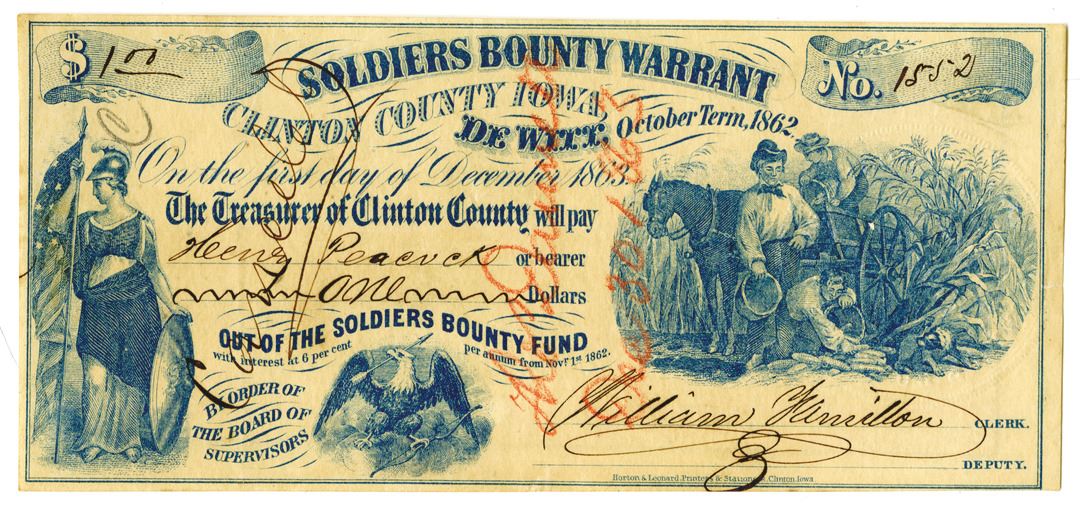 $ 1.00
No. 1552
SOLDIERS BOUNTY WARRANT
CLINTON COUNTY IOWA,
DE WITT, October Term, 1862.
On the first day of December 1863.
The Treasurer of Clinton County will pay
Henry Peacock or bearer
One Dollars
OUT OF THE SOLDIERS BOUNTY FUND
with interest at 6 per cent per annum from Novr 1st 1862.
BY ORDER OF
THE BOARD OF
SUPERVISORS
William Hamilton CLERK.
DEPUTY.
Horton & Leonard Printers & Stationers, Clinton Iowa